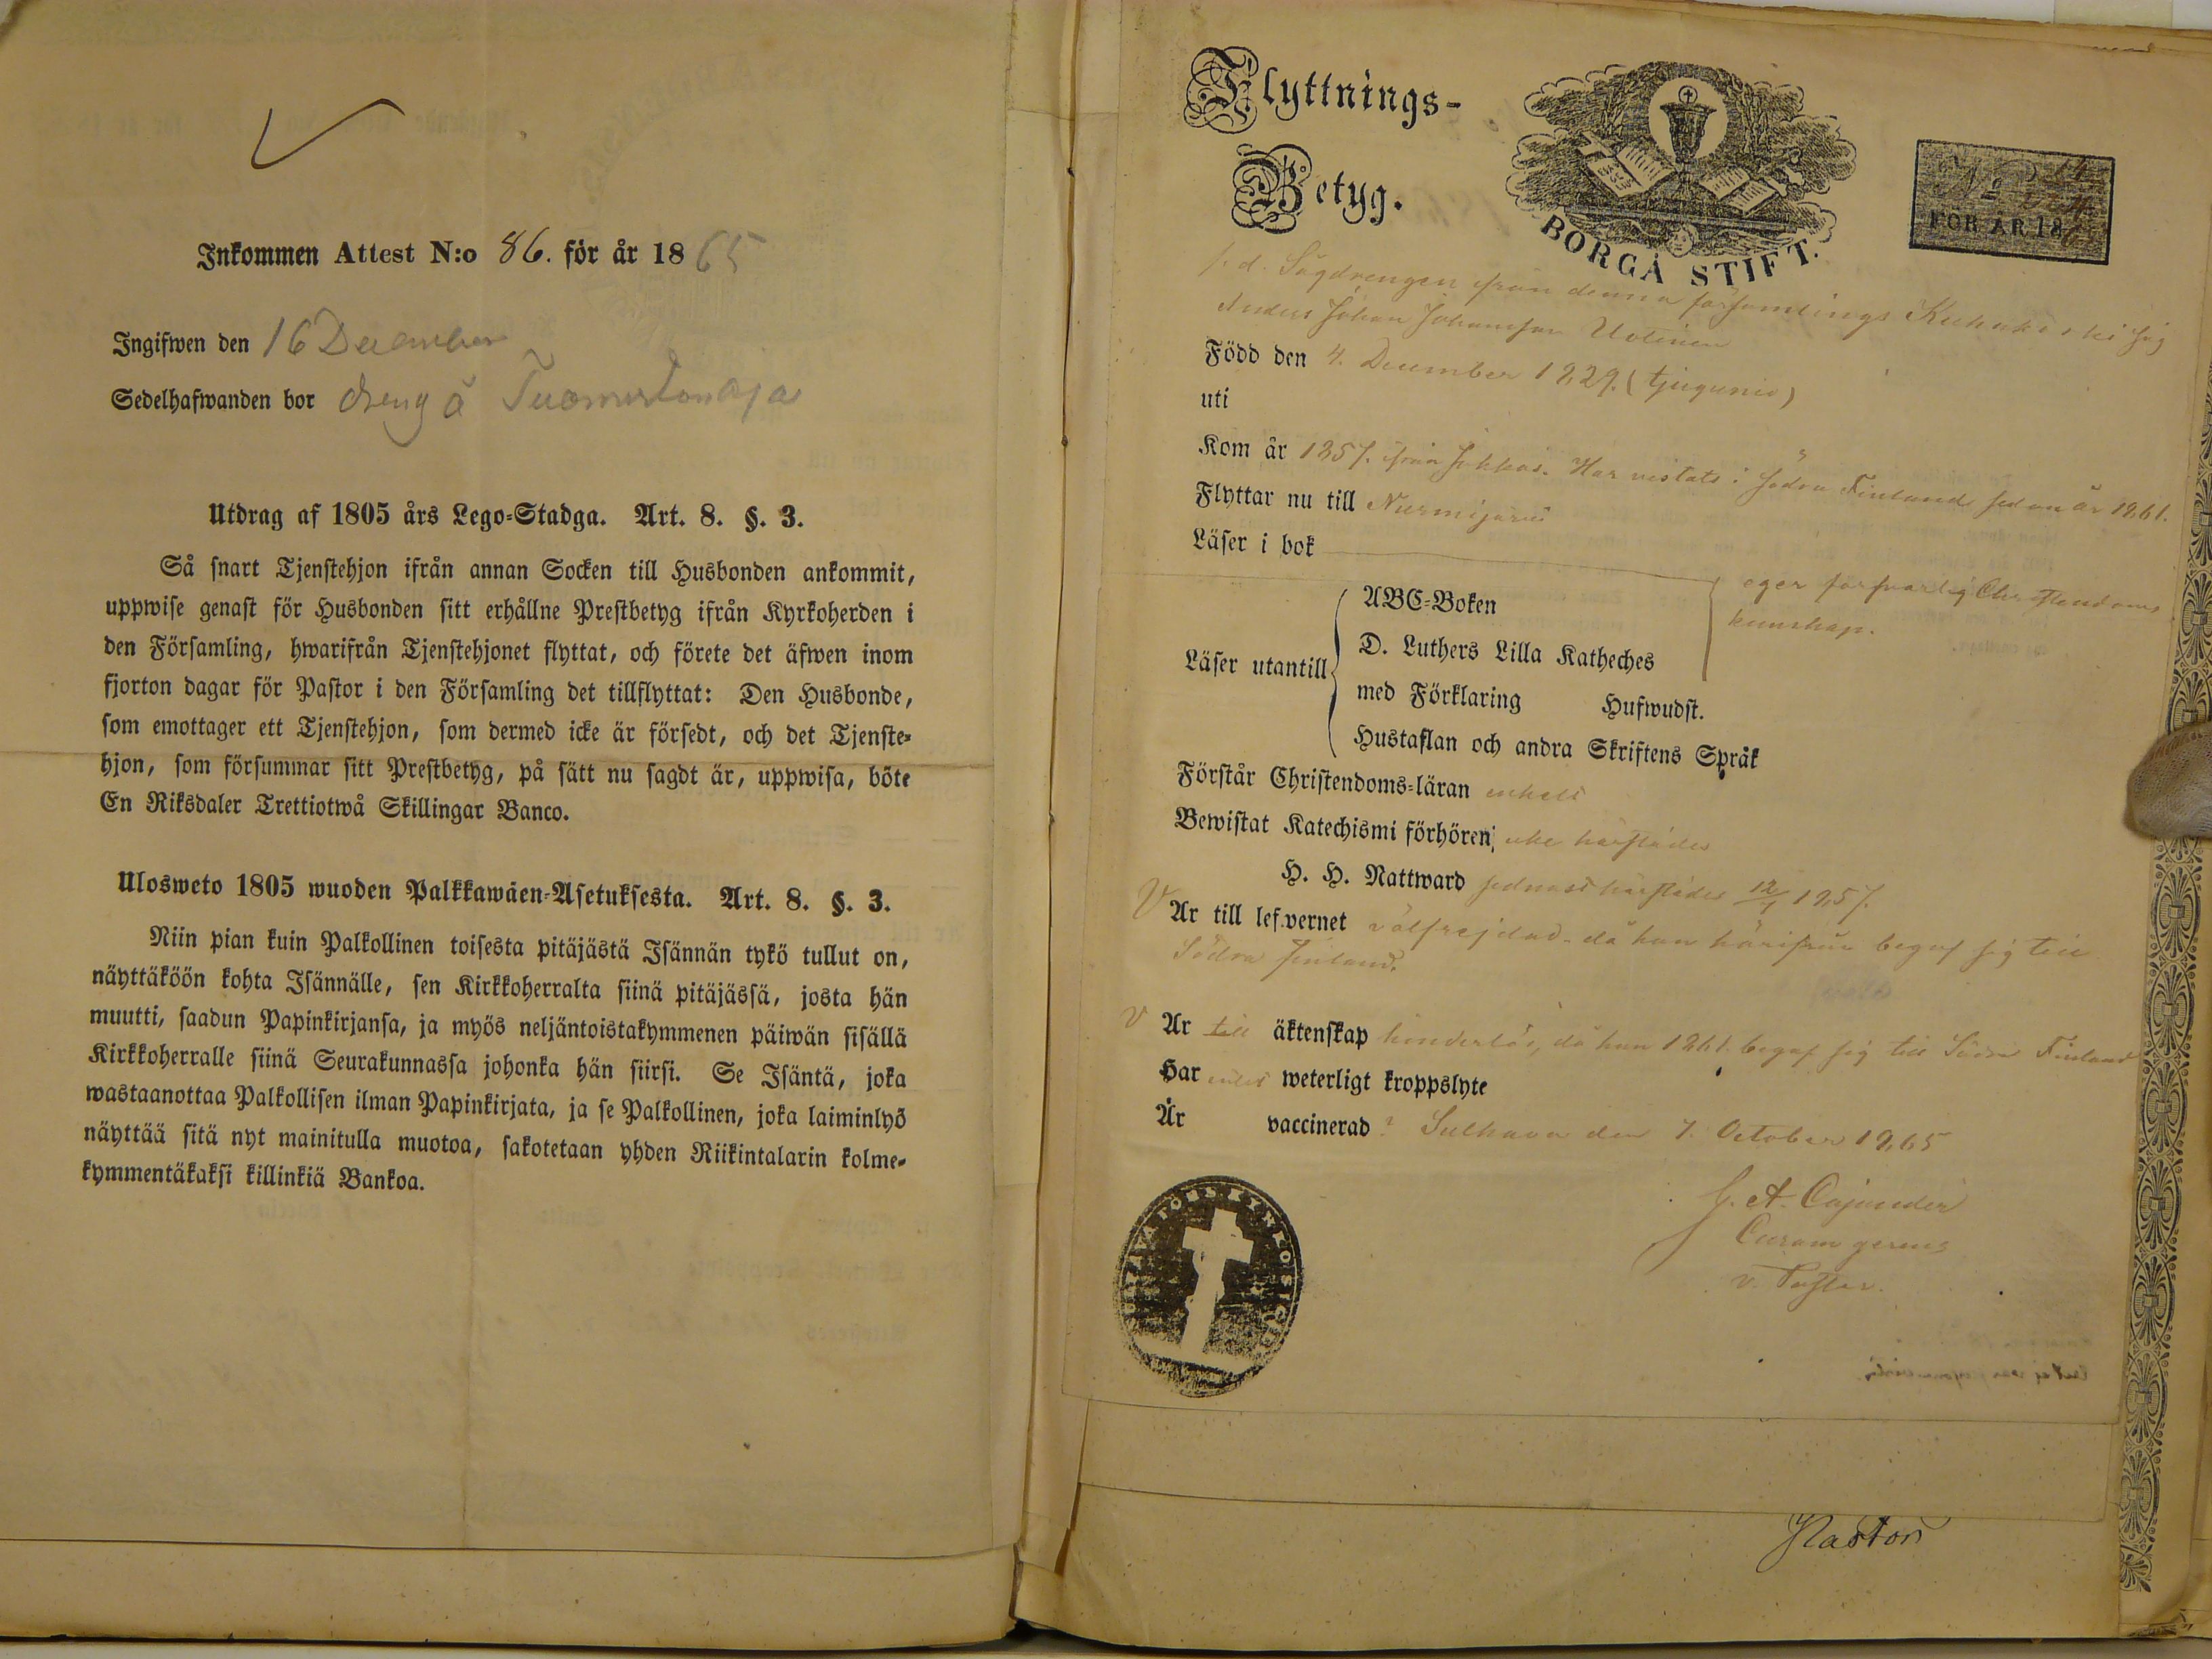 Inkommen Attest N:o 86. för år 1865
Ingifwen den 16 December
Sedelhafwanden bor dreng å
Utdrag af 1805 års Lego-Stadga. Art. 8. §. 3.
Så snart Tjenstehjon ifrån annan Socken till Husbonden ankommit,
uppwise genast för Husbonden sitt erhållne Prestbetyg ifrån Kyrkoherden i
den Församling, hwarifrån Tjenstehjonet flyttat, och förete det äfwen inom
fjorton dagar för Pastor i den Församling det tillflyttat: Den Husbonde,
som emottager ett Tjenstehjon, som dermed icke är försedt, och det Tjenste-
hjon, som försummar sitt Prestbetyg, på sätt nu sagdt är, uppwisa, böte
En Riksdaler Trettiotwå Skillingar Banco.
Ulosweto 1805 wuoden Palkkawäen-Asetuksesta. Art. 8. §. 3.
Niin pian kuin Palkollinen toisesta pitäjästä Isännän tykö tullut on,
näyttäköön kohta Isännälle, sen Kirkkoherralta siinä pitäjässä, josta hän
muutti, saadun Papinkirjansa, ja myös neljäntoistakymmenen päiwän sisällä
Kirkkoherralle siinä Seurakunnassa johonka hän siirsi. Se Isäntä, joka
wastaanottaa Palkollisen ilman Papinkirjata, ja se Palkollinen, joka laiminlyö
näyttää sitä nyt mainitulla muotoa, sakotetaan yhden Riikintalarin kolme-
kymmentäkaksi killinkiä Bankoa.
Flyttnings-
Betyg.
BORGÅ STIFT.
No
FÖR ÅR 18
f. d. Sågdrengen från denna församlings
Anders Johan Johansson Uotinen
Född den 4. December 1829. (tjugunio)
uti
Kom år 1857. från Jokkas. Har vistats i södra Finland sedan år 1861.
Flyttar nu till Nurmijärvi
Läser i bok
eger försvarlig Christendoms
kunskap.
Läser utantill
ABC-Boken
D. Luthers Lilla Katheches
med Förklaring Hufwudst.
Hustaflan och andra Skriftens Språk
Förstår Christendoms-läran enkelt
Bewistat Katechismi förhören, icke härstädes
H. H. Nattward sednast härstädes 1857.
V Är till lefvernet välfrejdad då han härifrån begaf sig till
Södra Finland.
V Är till äktenskap hinderlös, då han 1861 begaf sig till Södra Finland
Har intet weterligt kroppslyte
Är vaccinerad? Sulkava den 7. October 1865
J. A. Cajander
Curam gerens
v. Pastor.
SULKAVA FÖRS. KYRKOSIGILL
Pastor